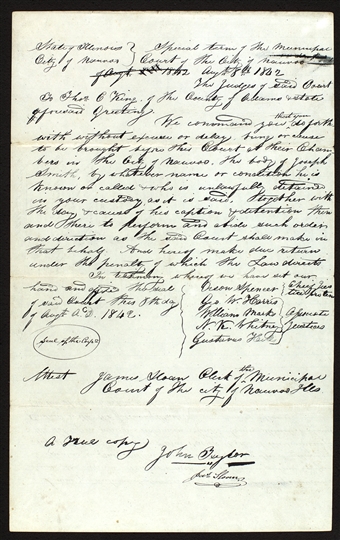 State of Illinois } Special term of the Municipal
City of Nauvoo } Court of the City of Nauvoo
of Augt 1842 Augt 8th 1842
The Judges of said Court
To Thos C King, of the County of Adams & state
aforesaid Greeting
We command you that you forth
with without excuse or delay, bring or cause
to be brought before this Court at their Cham
bers in the City of Nauvoo, the body of Joseph
Smith, by whatever name or condition he is
known or called & who is unlawfully detained
in your custody as it is said, together with
the day & cause of his caption & detention then
and there to perform and abide such order
and direction as the said Court shall make in
that behalf. And hereof make due return
under the penalty of which the Law directs
In testimony whereof we have set our
hand and affix the Seal
of said Court this 8th day
of Augt A.D. 1842.
Orson Spencer
Geo W Harris
William Marks
N. K. Whitney
Gustavus Hills
Associate
Justices
Seal of the Court
Attest James Sloan Clerk of the Municipal
Court of the city of Nauvoo Ills
A true copy
John